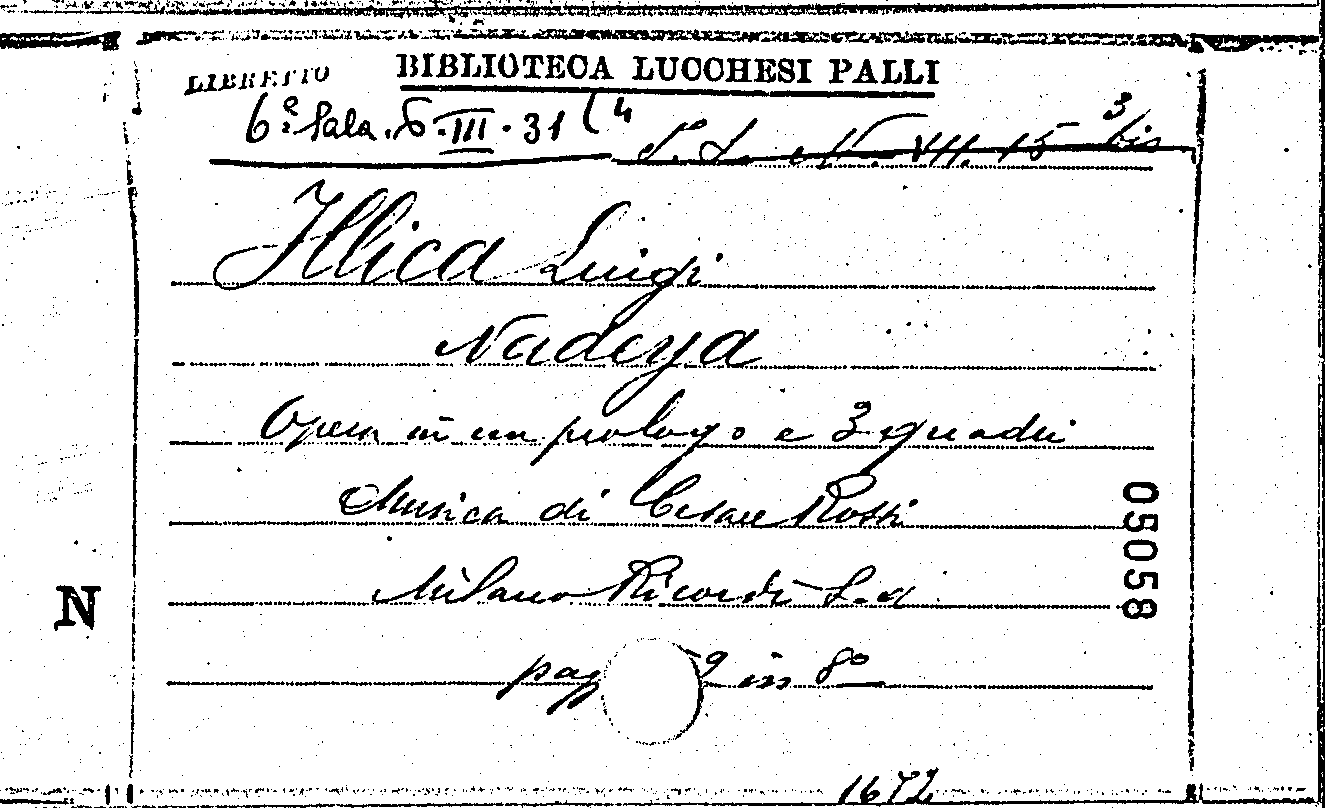 LIBRETTO
BIBLIOTECA LUCCHESI PALLI
6ª Sala. 6. III. 31 (4
S. L. N. VII. 15 3/bis
Illica Luigi
Nadeya
Opera in un prologo e 3 quadri
Musica di Cesare Rossi
Milano Ricordi S.d.
05058
N
pag 9 in 8°
1672